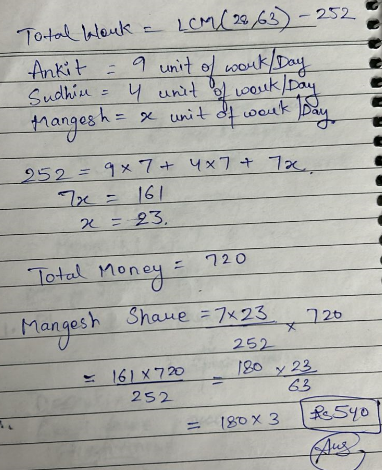 Total Work = LCM(28,63) - 252
Ankit = 9 unit of work/Day
Sudhir = 4 unit of work/Day
Mangesh = x unit of work/Day.
252 = 9 × 7 + 4 × 7 + 7x.
7x = 161
x = 23.
Total Money = 720
Mangesh Share = 7×23/252 × 720
= 161 × 720/252 = 180 × 23/63
= 180 × 3 Rs 540
Ans